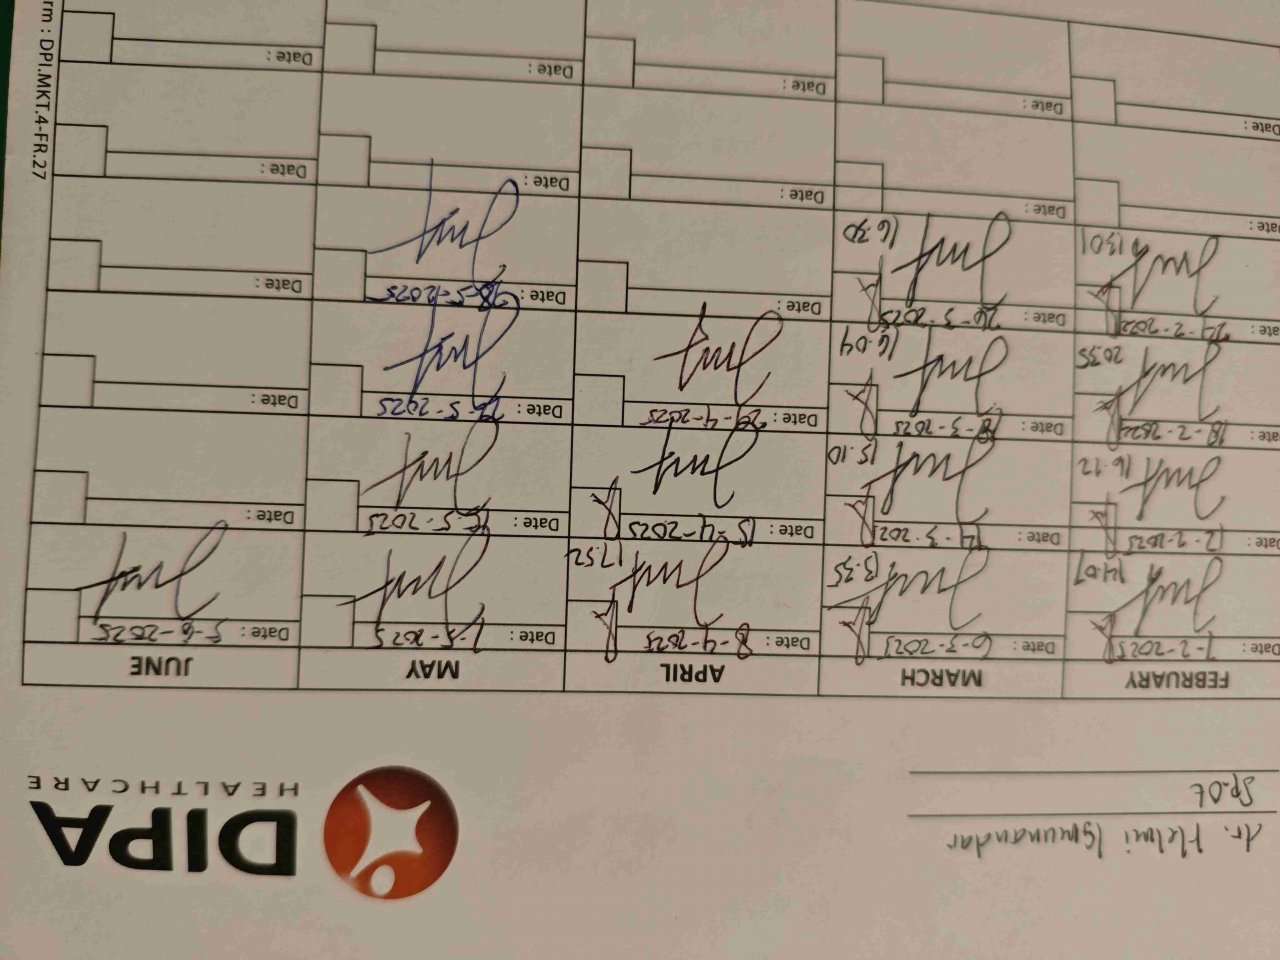 dr. Helmi Ismunandar
Sp.OT
DIPA
HEALTHCARE
FEBRUARY MARCH APRIL MAY JUNE
Date: 7-2-2025 Date: 6-3-2025 Date: 8-4-2025 Date: 7-5-2025 Date: 5-6-2025
14.07 13.35 17.52
Date: 12-2-2025 Date: 14-3-2025 Date: 15-4-2025 Date: Date:
16.12 15.10
Date: 18-2-2025 Date: 18-3-2025 Date: Date: Date:
20.35 16.04
Date: 24-2-2025 Date: 26-3-2025 Date: Date: 28-5-2025 Date:
13.01 16.30
Date: Date: Date: Date: Date:
Date: Date: Date: Date: Date:
rm : DPI.MKT.4-FR.27